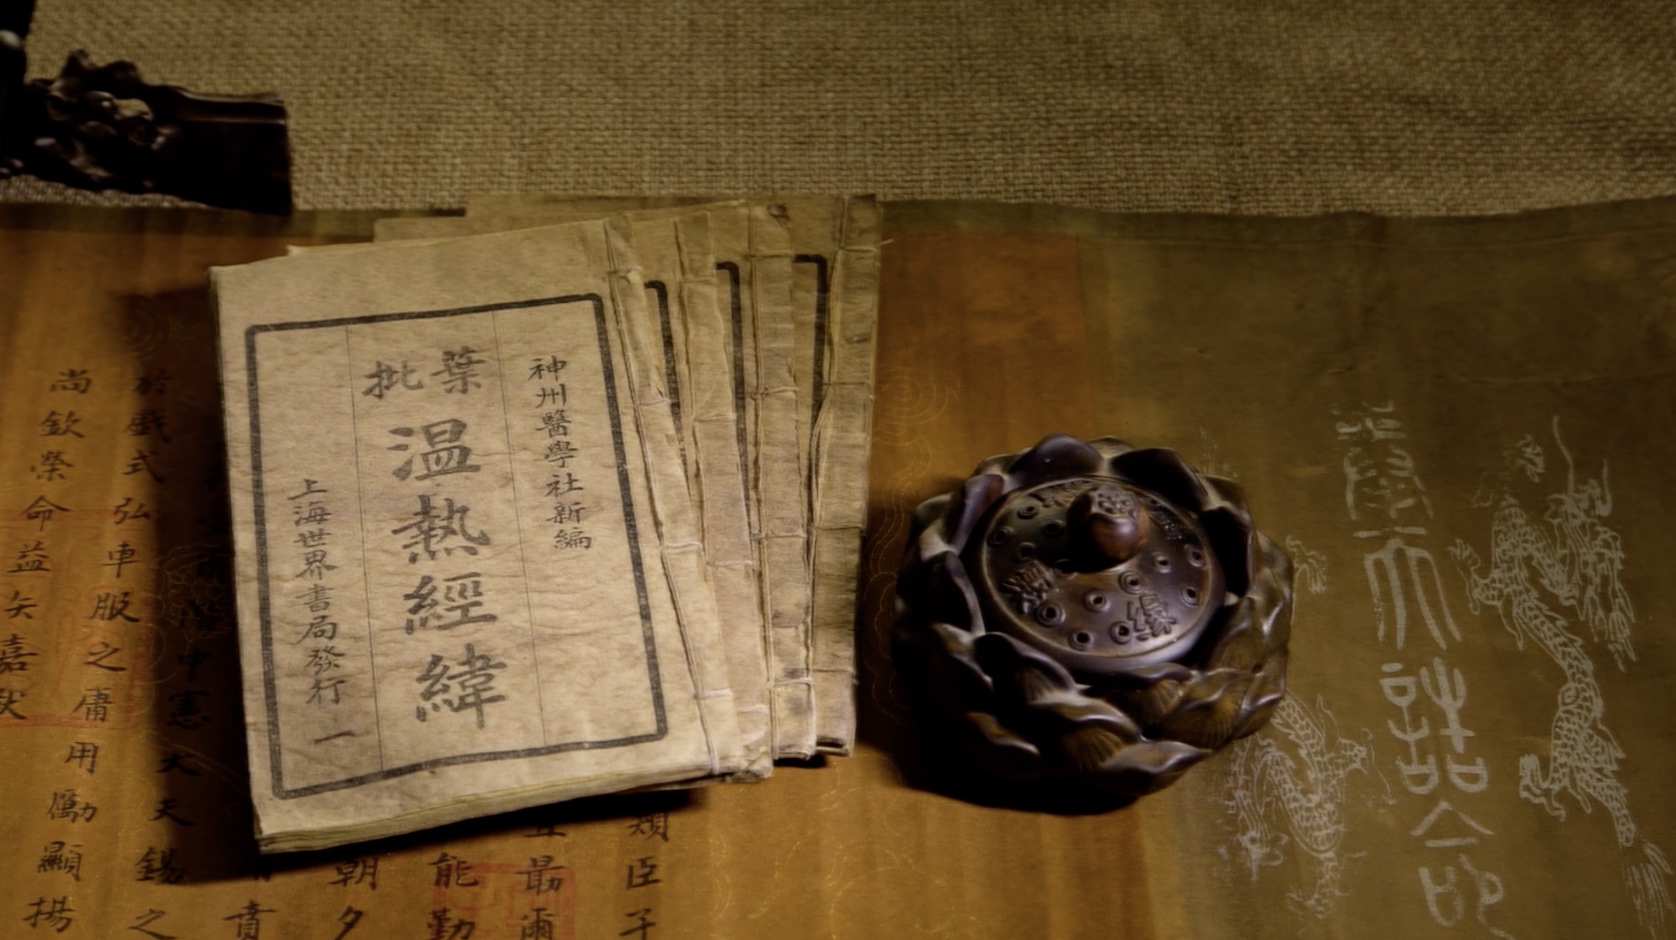 神州醫學社新編
葉批
温熱經緯
上海世界書局發行 一
奉天誥命
類臣子
最爾
能勤
朝夕
賁
中憲大夫錫之
於戲式弘車服之庸用勵顯揚
尚欽榮命益矢嘉猷